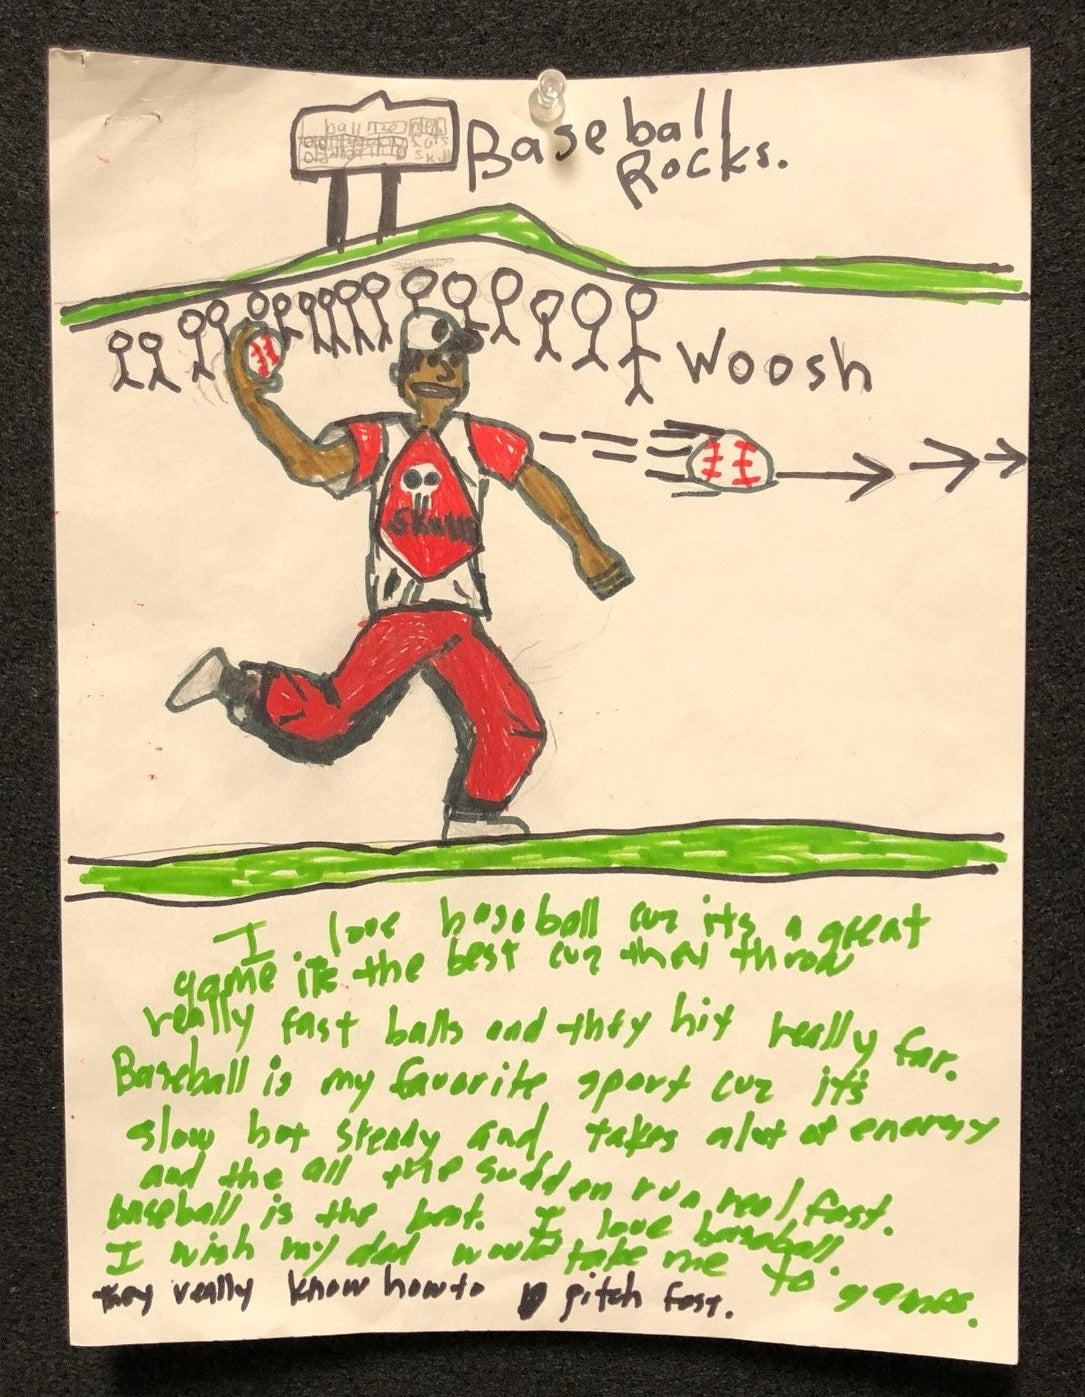 Baseball
Rocks.
Woosh
Skulls
I love baseball cuz its a great
game it's the best cuz they throw
really fast balls and they hit really far.
Baseball is my favorite sport cuz it's
slow but steady and takes alot of energy
and the all the sudden run real fast.
baseball is the best. I love baseball.
I wish my dad would take me to games.
They really know how to pitch fast.